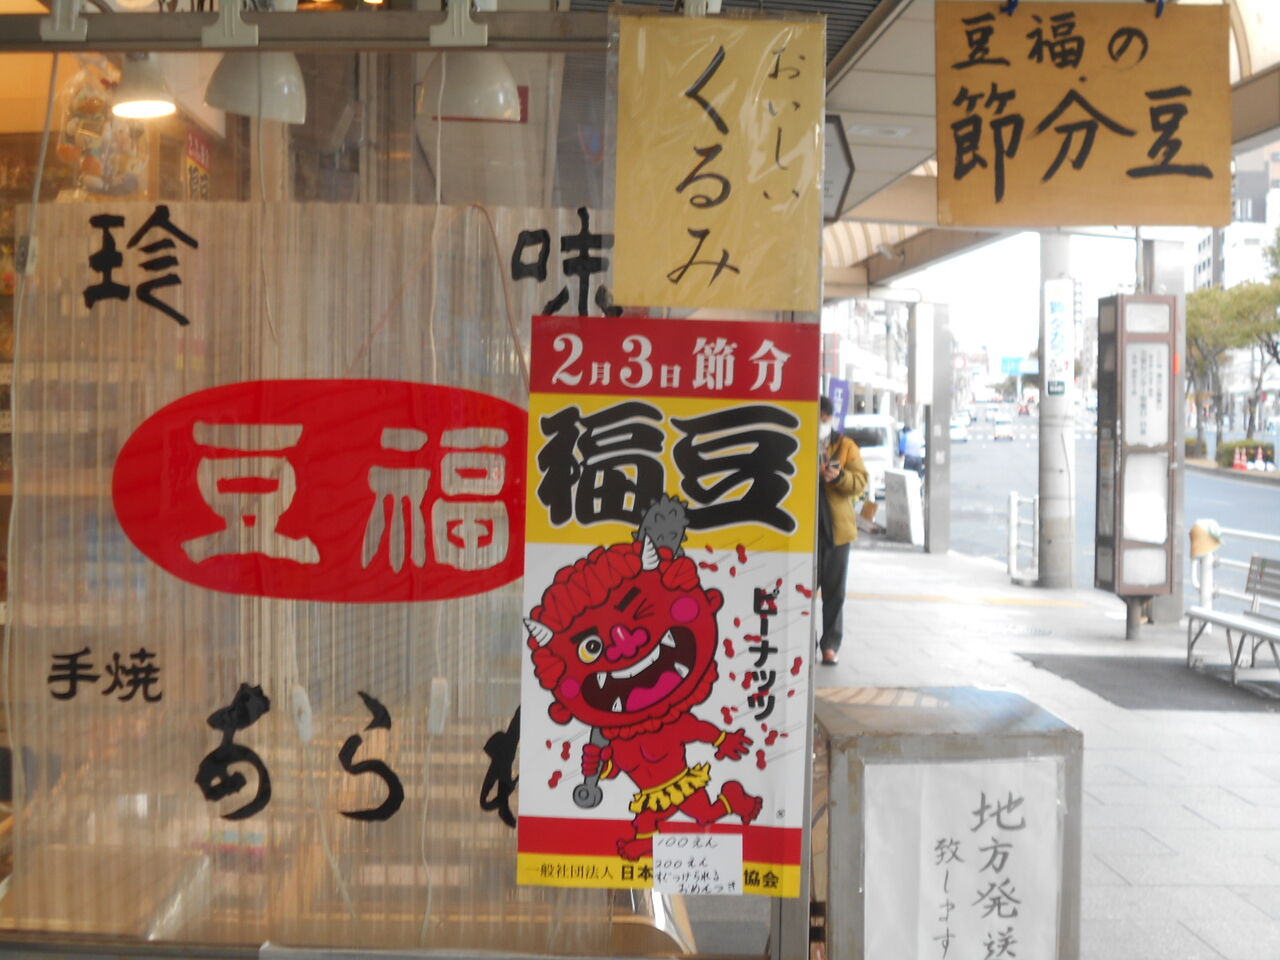 豆福の
節分豆
おいしい
くるみ
珍味
豆福
手焼
あられ
2月3日節分
福豆
ピーナッツ
100えん
200えん
すぐつけられる
おめんつき
一般社団法人 日本
協会
地方発送
致します